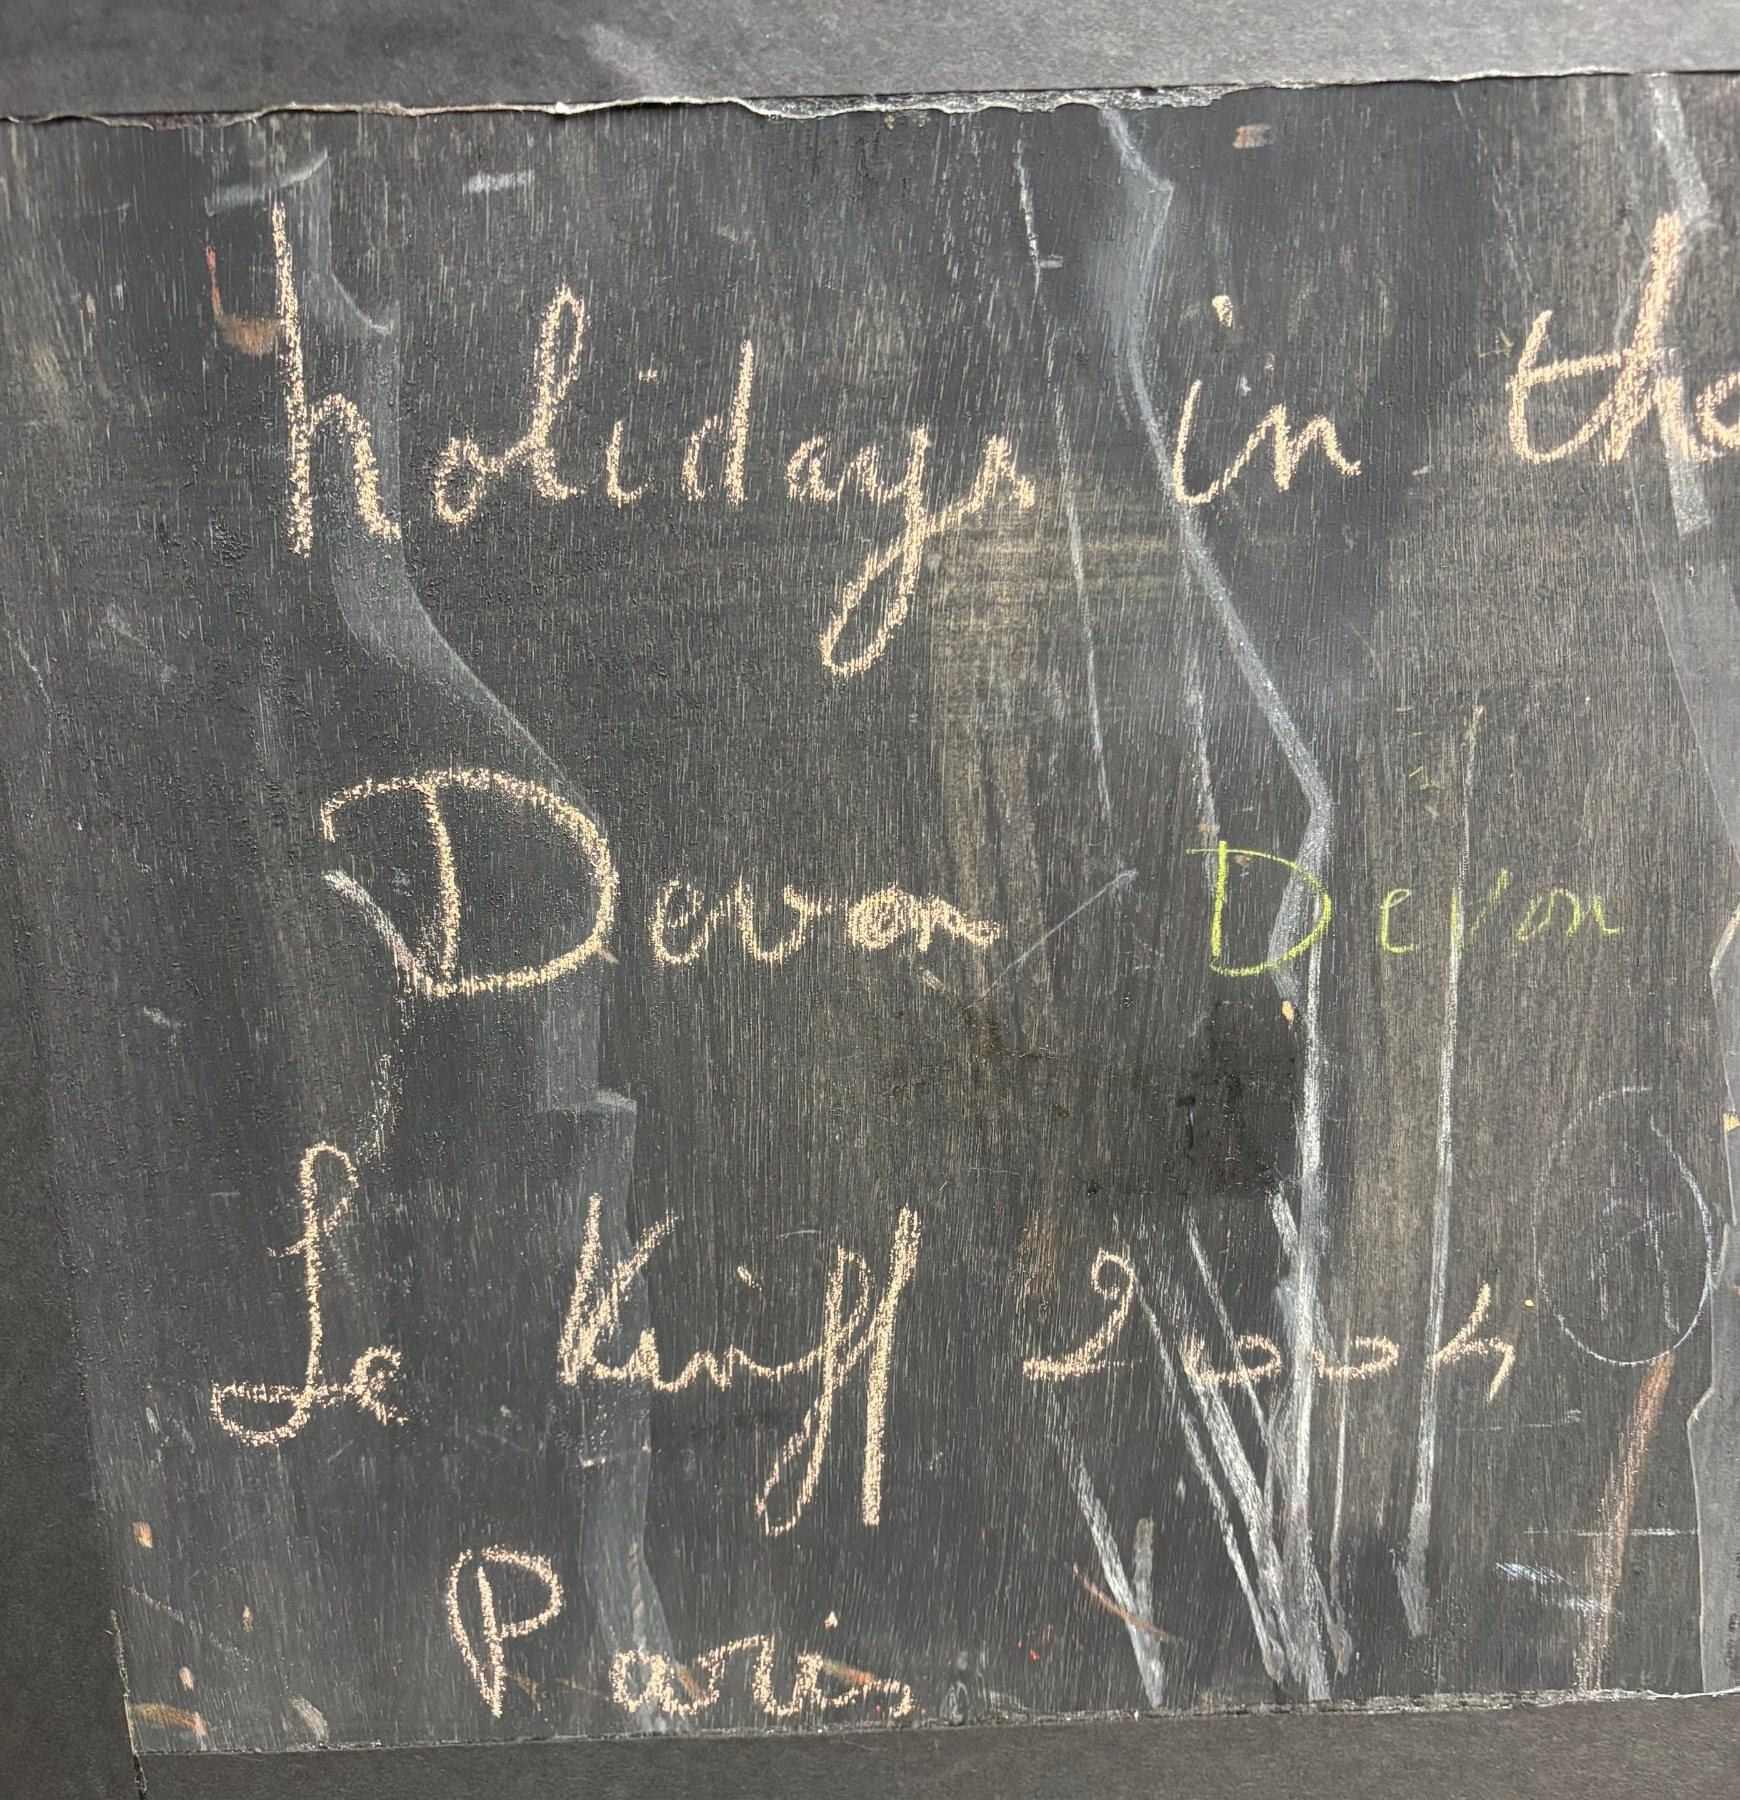 holidays in the
Devon Devon
Le Kiniff 2004
Paris